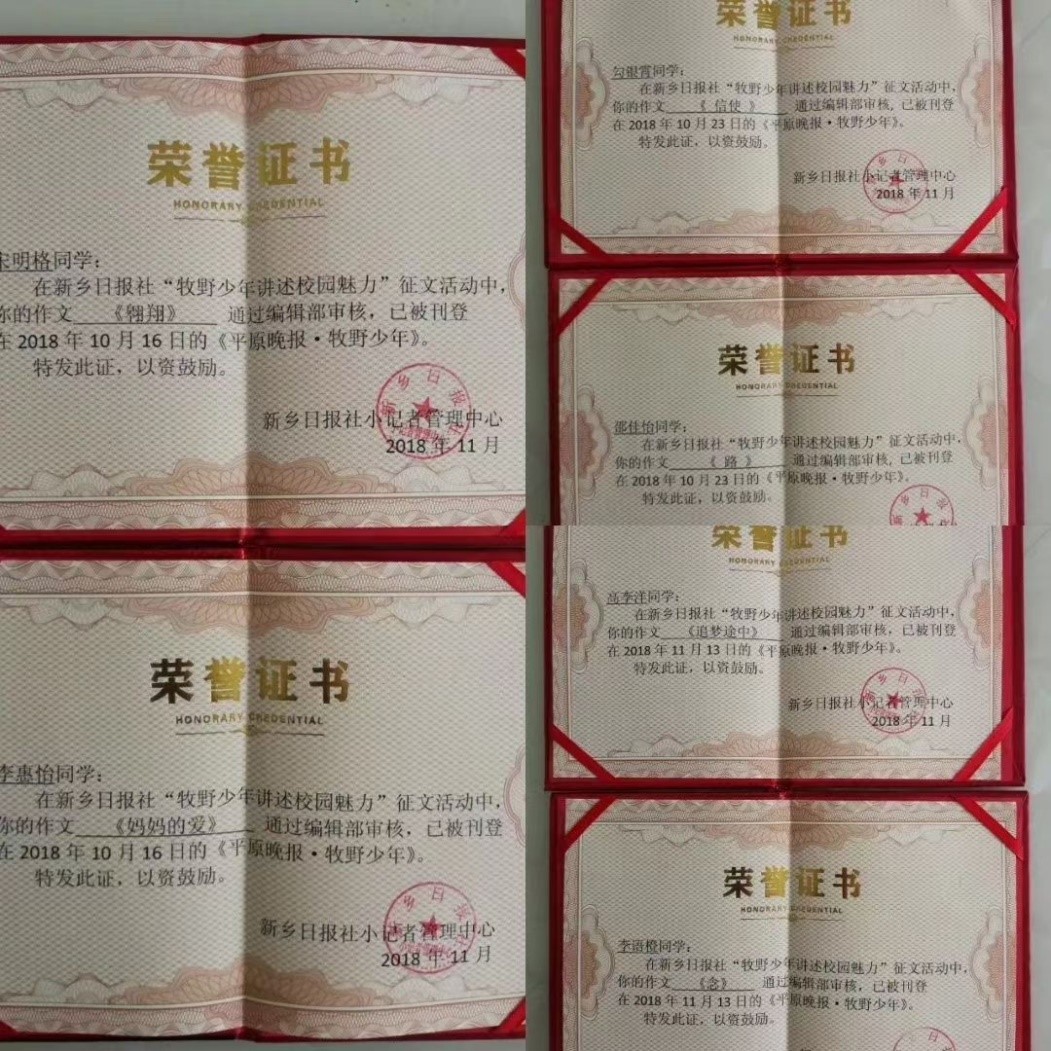 荣誉证书
HONORARY CREDENTIAL
宋明格同学：
在新乡日报社“牧野少年讲述校园魅力”征文活动中，
你的作文 《翱翔》 通过编辑部审核，已被刊登
在 2018 年 10 月 16 日的《平原晚报·牧野少年》。
特发此证，以资鼓励。
新乡日报社小记者管理中心
2018 年 11 月
荣誉证书
HONORARY CREDENTIAL
李惠怡同学：
在新乡日报社“牧野少年讲述校园魅力”征文活动中，
你的作文 《妈妈的爱》 通过编辑部审核，已被刊登
在 2018 年 10 月 16 日的《平原晚报·牧野少年》。
特发此证，以资鼓励。
新乡日报社小记者管理中心
2018 年 11 月
荣誉证书
HONORARY CREDENTIAL
勾银霄同学：
在新乡日报社“牧野少年讲述校园魅力”征文活动中，
你的作文 《 信使 》 通过编辑部审核，已被刊登
在 2018 年 10 月 23 日的《平原晚报·牧野少年》。
特发此证，以资鼓励。
新乡日报社小记者管理中心
2018 年 11 月
荣誉证书
HONORARY CREDENTIAL
邵佳怡同学：
在新乡日报社“牧野少年讲述校园魅力”征文活动中，
你的作文 《 路 》 通过编辑部审核，已被刊登
在 2018 年 10 月 23 日的《平原晚报·牧野少年》。
特发此证，以资鼓励。
荣誉证书
HONORARY CREDENTIAL
高李洋同学：
在新乡日报社“牧野少年讲述校园魅力”征文活动中，
你的作文 《追梦途中》 通过编辑部审核，已被刊登
在 2018 年 11 月 13 日的《平原晚报·牧野少年》。
特发此证，以资鼓励。
新乡日报社小记者管理中心
2018 年 11 月
荣誉证书
HONORARY CREDENTIAL
李语橙同学：
在新乡日报社“牧野少年讲述校园魅力”征文活动中，
你的作文 《念》 通过编辑部审核，已被刊登
在 2018 年 11 月 13 日的《平原晚报·牧野少年》。
特发此证，以资鼓励。